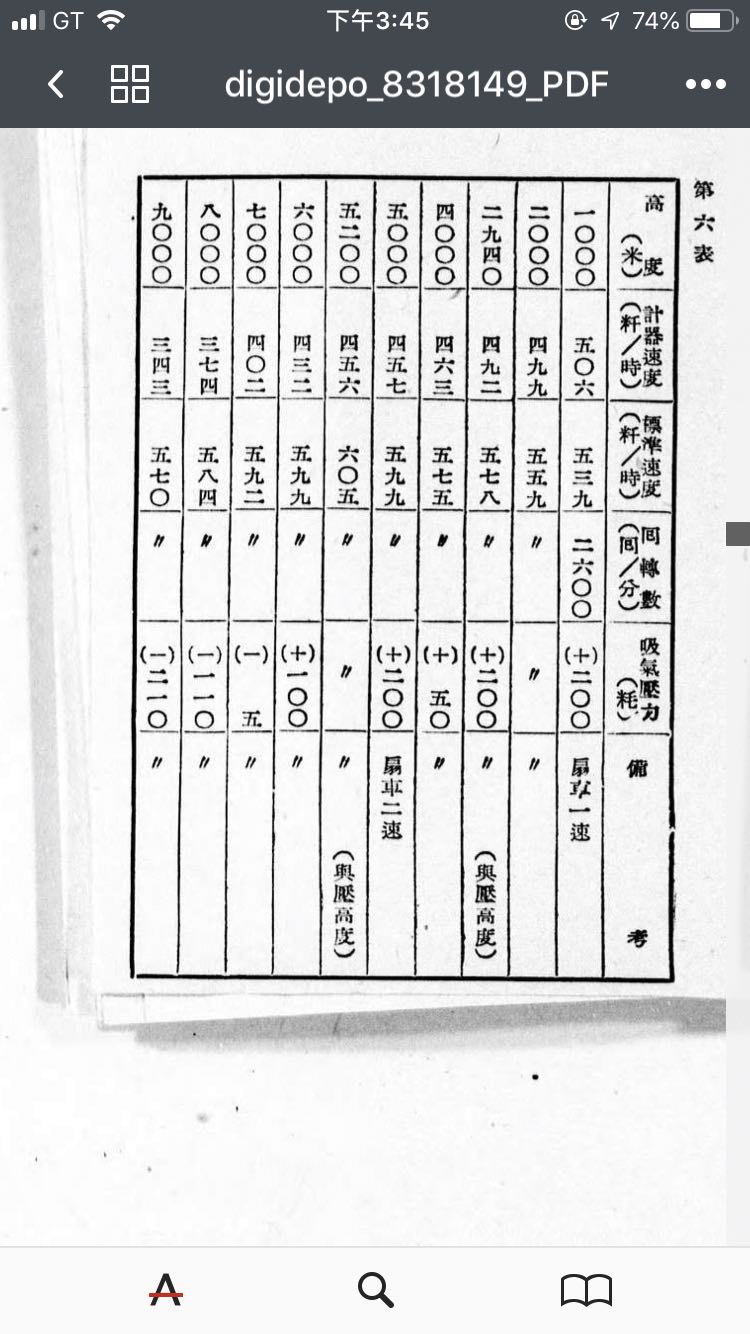 GT
下午3:45
74%
digidepo_8318149_PDF
第六表
高度(米)
計器速度(粁/時)
標準速度(粁/時)
囘轉數(囘/分)
吸氣壓力(粍)
備考
一〇〇〇 五〇六 五三九 二六〇〇 (十)二〇〇 扇車一速
二〇〇〇 四九九 五五九 〃 〃 〃
二九四〇 四九二 五七八 〃 (十)二〇〇 〃 (與壓高度)
四〇〇〇 四六三 五七五 〃 (十)五〇 〃
五〇〇〇 四五七 五九九 〃 (十)二〇〇 扇車二速
五二〇〇 四五六 六〇五 〃 〃 〃 (與壓高度)
六〇〇〇 四三二 五九九 〃 (十)一〇〇 〃
七〇〇〇 四〇二 五九二 〃 (一)五 〃
八〇〇〇 三七四 五八四 〃 (一)一一〇 〃
九〇〇〇 三四三 五七〇 〃 (一)二一〇 〃
A